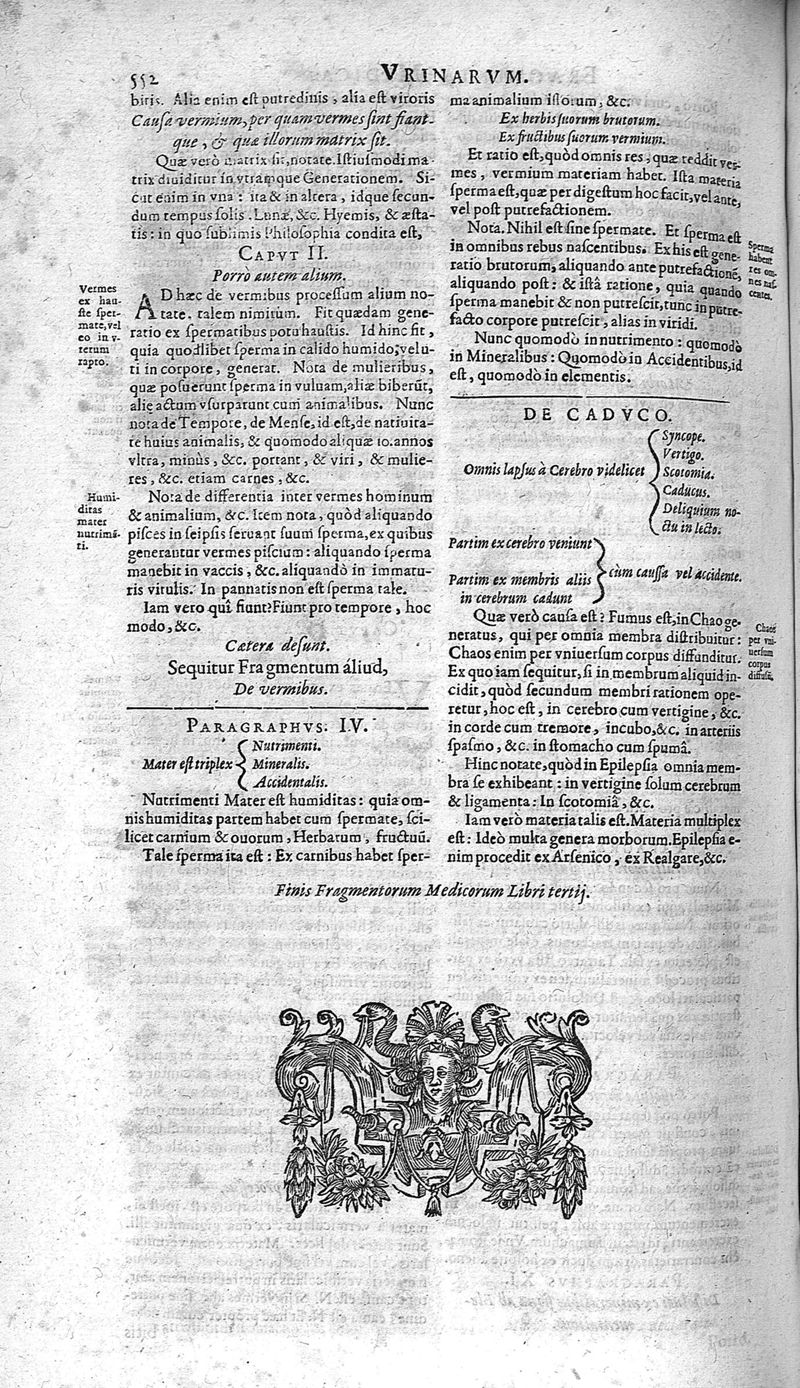 552
VRINARVM.
biris. Alia enim est putredinis, alia est viroris
Causa vermium, per quam vermes sint fiant-
que, & quæ illorum matrix sit.
Quæ verò matrix sit, notate. Istiusmodi ma-
trix diuiditur in vtramque Generationem. Si-
cut enim in vna: ita & in altera, idque secun-
dum tempus solis, Lunæ, &c. Hyemis, & æsta-
tis: in quo sublimis Philosophia condita est,
CAPVT II.
Porrò autem alium.
Vermes
ex hau-
ste sper-
mate, vel
eo in v-
terum
rapto.
AD hæc de vermibus processum alium no-
tate, talem nimirum. Fit quædam gene-
ratio ex spermatibus potu haustis. Id hinc fit,
quia quodlibet sperma in calido humido, velu-
ti in corpore, generat. Nota de mulieribus,
quæ posuerunt sperma in vuluam, aliæ biberūt,
alię actum vsurparunt cum animalibus. Nunc
nota de Tempore, de Mense, id est, de natiuita-
te huius animalis, & quomodo aliquæ 10. annos
vltra, minùs, &c. portant, & viri, & mulie-
res, &c. etiam carnes, &c.
Humi-
ditas
mater
nutrimē-
ti.
Nota de differentia inter vermes hominum
& animalium, &c. Item nota, quòd aliquando
pisces in seipsis seruant suum sperma, ex quibus
generantur vermes piscium: aliquando sperma
manebit in vaccis, &c. aliquando in immatu-
ris vitulis. In pannatis non est sperma tale.
Iam vero qui fiunt? Fiunt pro tempore, hoc
modo, &c.
Cætera desunt.
Sequitur Fragmentum áliud,
De vermibus.
PARAGRAPHVS. IV.
Mater est triplex
Nutrimenti.
Mineralis.
Accidentalis.
Nutrimenti Mater est humiditas: quia om-
nis humiditas partem habet cum spermate, sci-
licet carnium & ouorum, Herbarum, fructuū.
Tale sperma ita est: Ex carnibus habet sper-
ma animalium istorum, &c.
Ex herbis suorum brutorum.
Ex fructibus suorum vermium.
Et ratio est, quòd omnis res, quæ reddit ver-
mes, vermium materiam habet. Ista materia
sperma est, quæ per digestum hoc facit, vel ante,
vel post putrefactionem.
Nota. Nihil est sine spermate. Et sperma est
in omnibus rebus nascentibus. Ex his est gene-
ratio brutorum, aliquando ante putrefactionē,
aliquando post: & istâ ratione, quia quando
sperma manebit & non putrescit, tunc in putre-
facto corpore putrescit, alias in viridi.
Sperma
habent
res om-
nes nas-
centes.
Nunc quomodò in nutrimento: quomodò
in Mineralibus: Quomodò in Accidentibus, id
est, quomodò in elementis.
DE CADVCO.
Omnis lapsus à Cerebro videlicet
Syncope.
Vertigo.
Scotomia.
Caducus.
Deliquium no-
ctu in lecto.
Partim ex cerebro veniunt
Partim ex membris aliis
in cerebrum cadunt
cùm caussa vel accidente.
Quæ verò causa est? Fumus est, in Chao ge-
neratus, qui per omnia membra distribuitur:
Chaos enim per vniuersum corpus diffunditur.
Ex quo iam sequitur, si in membrum aliquid in-
cidit, quòd secundum membri rationem ope-
retur, hoc est, in cerebro cum vertigine, &c.
in corde cum tremore, incubo, &c. in arteriis
spasmo, &c. in stomacho cum spumâ.
Chaos
per vni-
uersum
corpus
diffusū.
Hinc notate, quòd in Epilepsia omnia mem-
bra se exhibeant: in vertigine solum cerebrum
& ligamenta: In scotomiâ, &c.
Iam verò materia talis est. Materia multiplex
est: Ideò multa genera morborum. Epilepsia e-
nim procedit ex Arsenico, ex Realgare, &c.
Finis Fragmentorum Medicorum Libri tertij.